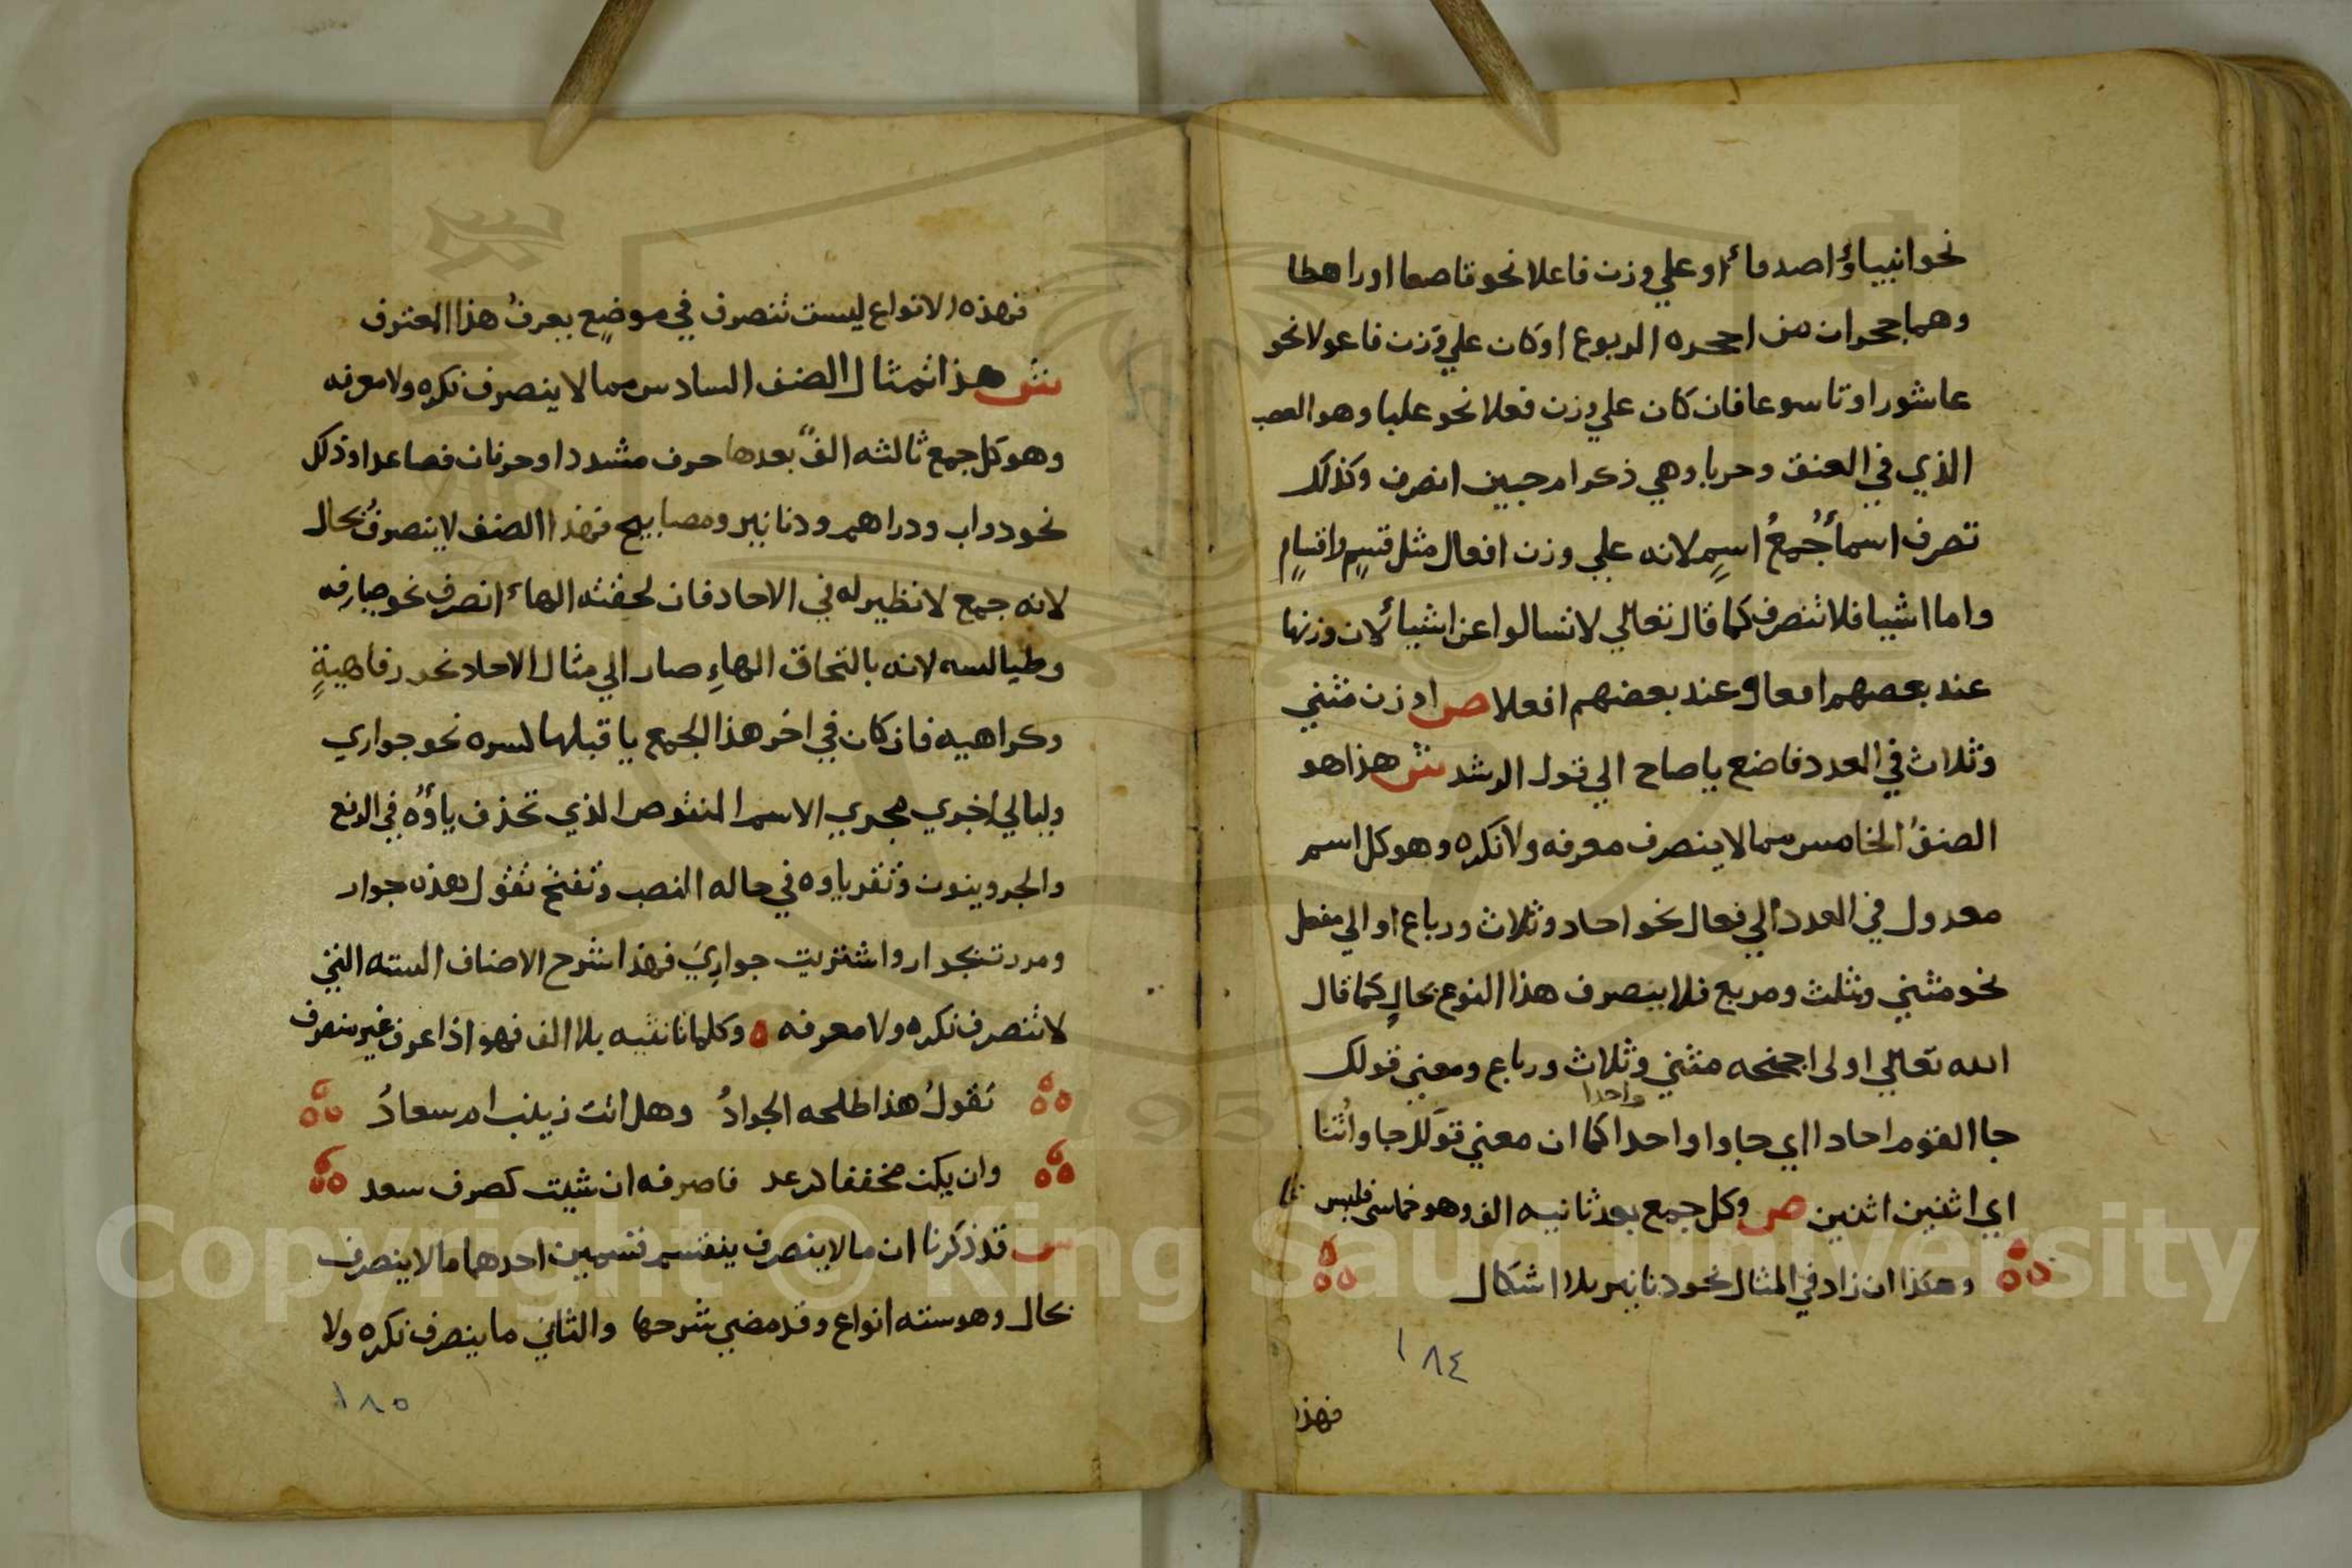 نحو انبياؤ اصدقاء او على وزن فاعلا نحو قاصعا او راهطا
وهما جحران من اجحره اليربوع او كان علي وزن فاعولا نحو
عاشورا وتاسوعا فان كان علي وزن فعلا نحو علبا وهو العصب
الذي في العنق وحربا وهي ذكر ام حبين انصرف وكذلك
تصرف اسماء جمع اسم لانه علي وزن افعال مثل قسم واقسام
واما اشيا فلا تنصرف كما قال تعالي لا تسالوا عن اشياء لان وزنها
عند بعضهم افعال وعند بعضهم افعلا ص او وزن مثني
وثلاث في العدد فاضع يا صاح الي قول الرشد ش هذا هو
الصنف الخامس مما لا ينصرف معرفه ولا نكره وهو كل اسم
معدول في العدد الي فعال نحو احاد وثلاث ورباع او الي مفعل
نحو مثني ومثلث ومربع فلا ينصرف هذا النوع بحال كما قال
الله تعالي اولى اجنحه مثني وثلاث ورباع ومعني قولك
جا القوم احادا اي جاوا واحدا كما ان معني قولك جاوا ثنا
واحدا
اي اثنين اثنين ص وكل جمع بعد ثانيه الف وهو خماسي فليس
وهكذا ان زاد في المثال نحو دنانير بلا اشكال
١٨٤
فهذه
فهذه الانواع ليست تنصرف في موضع يعرف هذا المعترف
ش هذا تمثال الصنف السادس مما لا ينصرف نكره ولا معرفه
وهو كل جمع ثالثه الف بعدها حرف مشدد او حرفان فصاعدا وذلك
نحو دواب ودراهم ودنانير ومصابيح فهذا الصنف لا ينصرف بحال
لانه جمع لا نظير له في الاحاد فان لحقته الهاء انصرف نحو صيارفه
وطيالسه لانه بالتحاق الهاء صار الي مثال الاحاد نحو رفاهية
وكراهيه فان كان في اخر هذا الجمع يا قبلها كسره نحو جواري
وليالي اجري مجري الاسم المنقوص الذي تحذف ياؤه في الرفع
والجر وينون وتقر ياوه في حاله النصب وتفتح تقول هذه جوار
ومررت بجوار واشتريت جواري فهذا شرح الاصناف السته التي
لا تنصرف نكره ولا معرفه ه وكلما تانيثه بلا الف فهو اذا عرف غير منصرف
تقول هذا طلحه الجواد وهل اتت زينب ام سعاد
وان يكن مخففا كدعد فاصرفه ان شيت كصرف سعد
ش قد ذكرنا ان ما لا ينصرف ينقسم قسمين احدهما ما لا ينصرف
بحال وهو سته انواع وقد مضي شرحها والثاني ما ينصرف نكره ولا
١٨٥
Copyright © King Saud University
1957